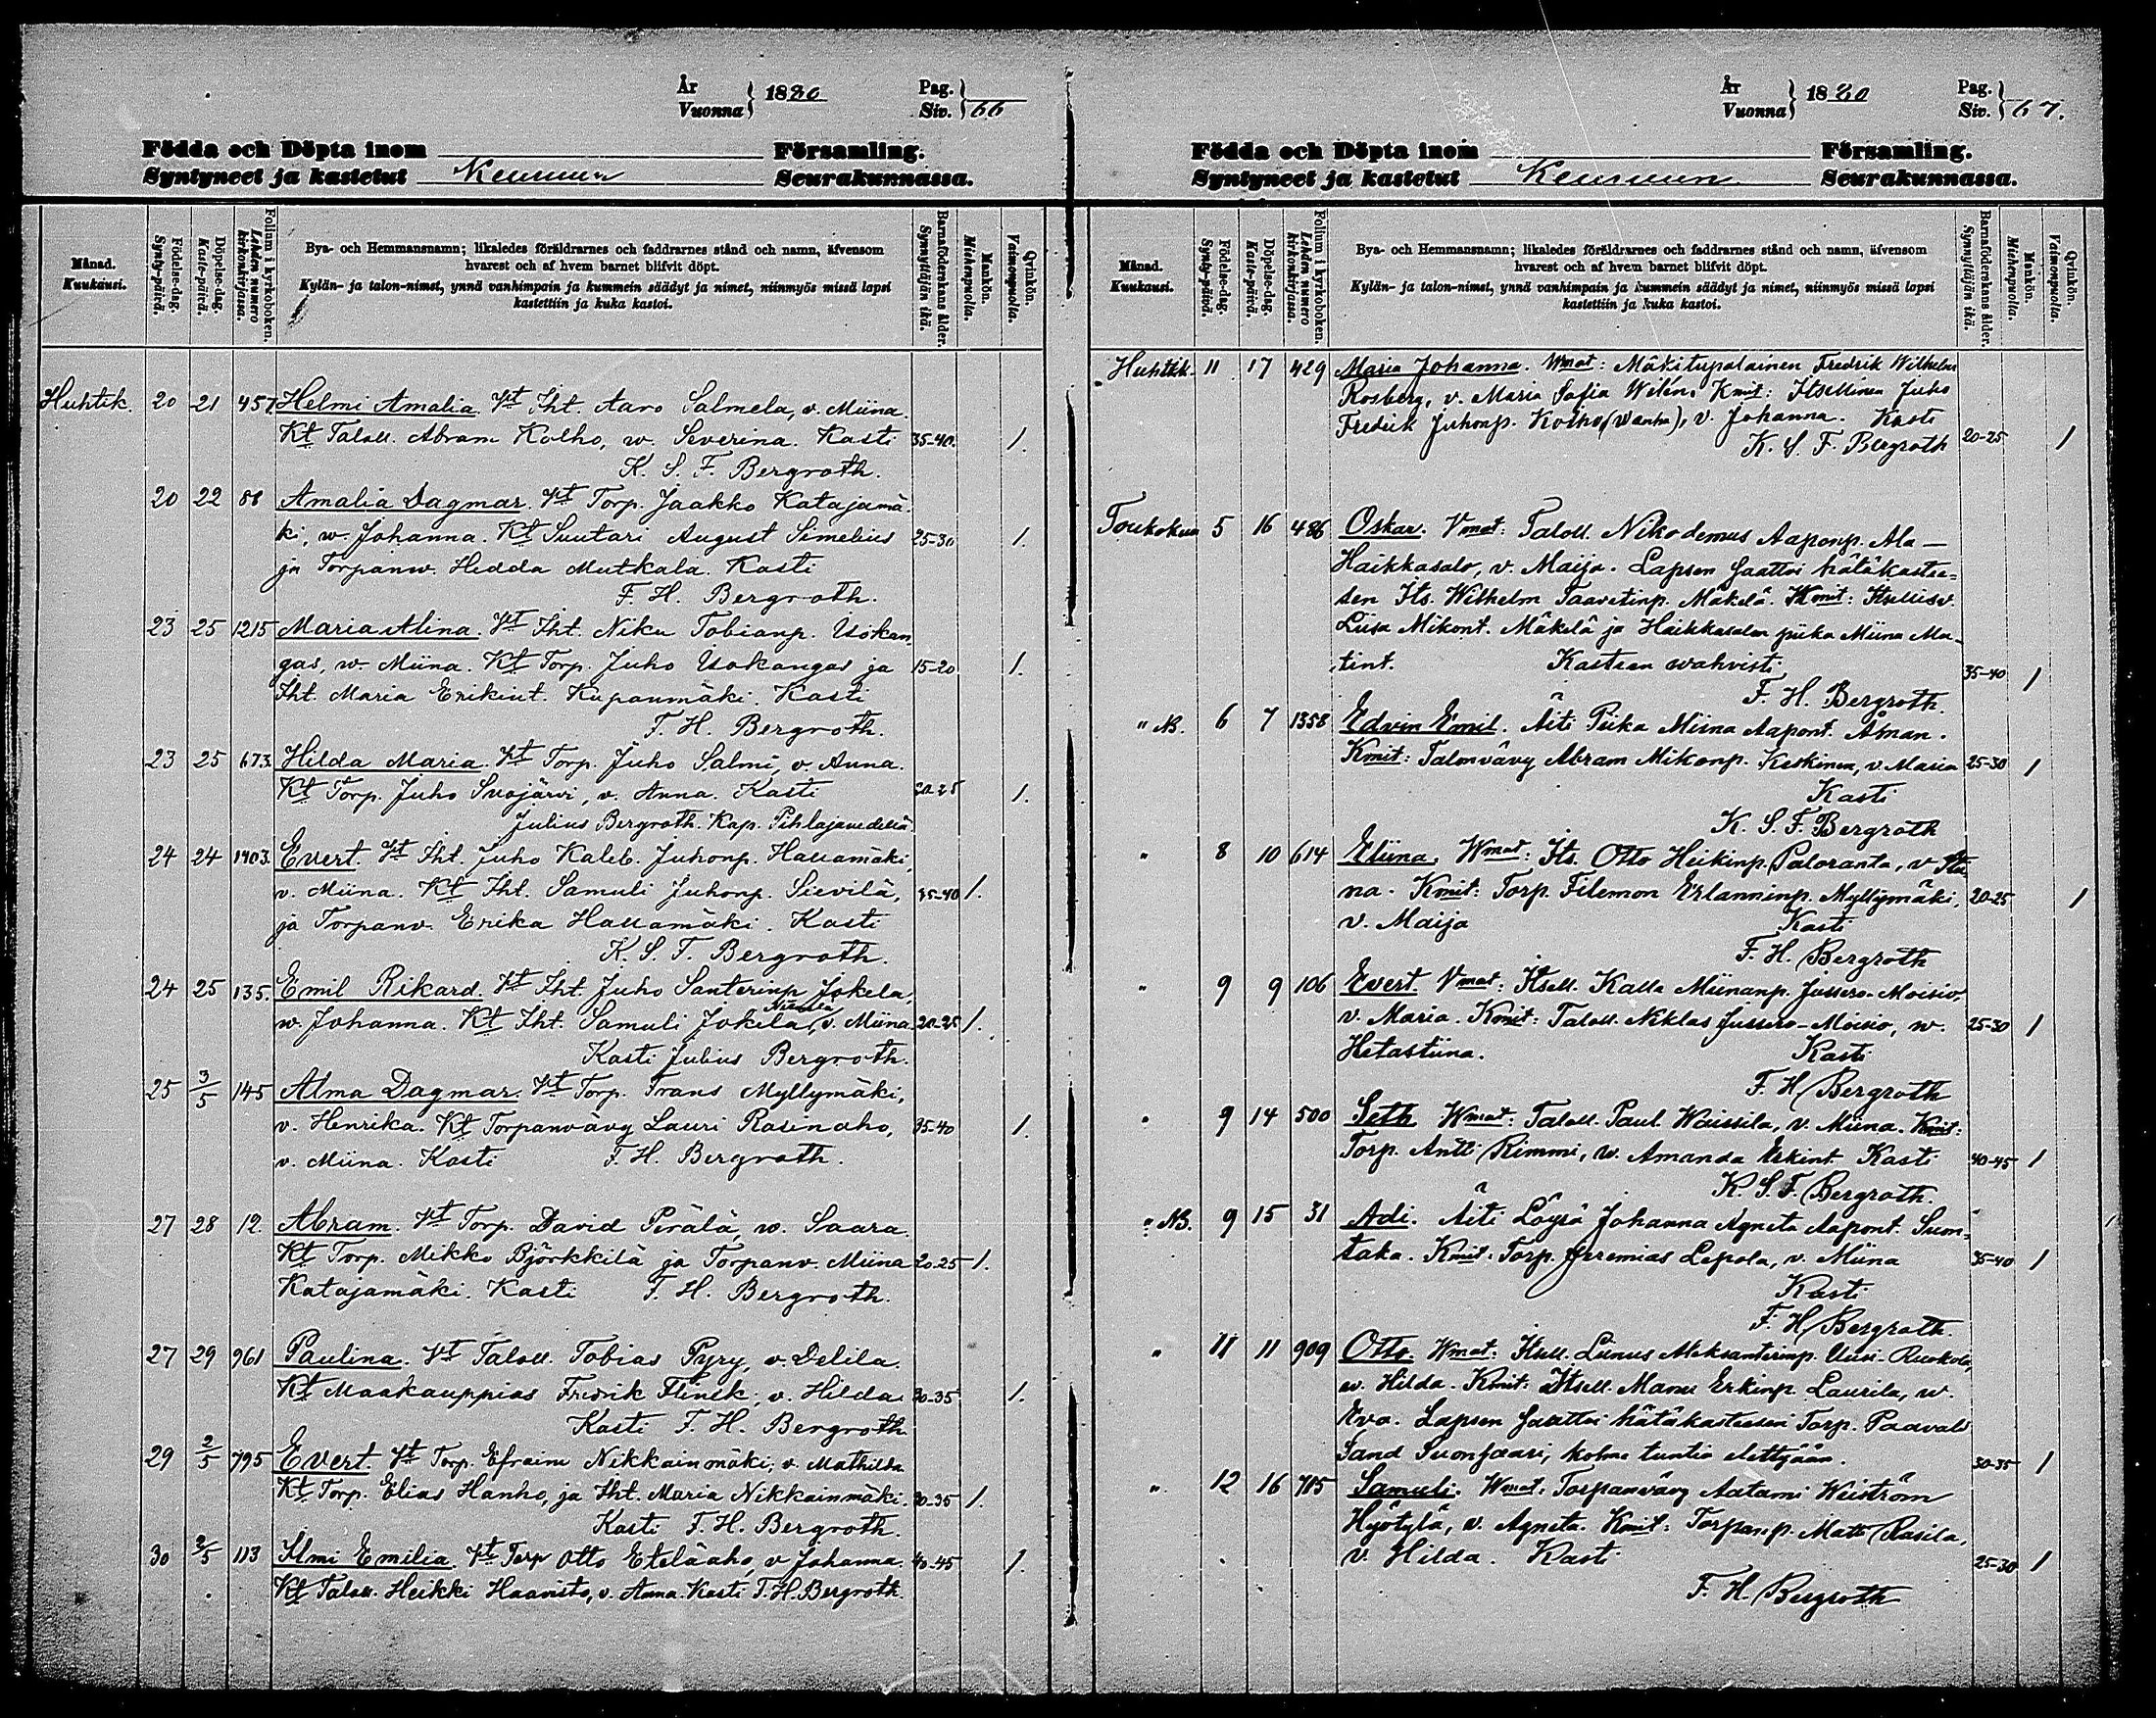 År
Vuonna } 1880
Pag.
Siv. } 66
Födda och Döpta inom Församling.
Syntyneet ja kastetut Keuruun Seurakunnassa.
Månad.
Kuukausi.
Födelse-dag.
Synty-päivä.
Döpelse-dag.
Kaste-päivä.
Folium i kyrkoboken.
Lehden numero kirkonkirjassa.
Bya- och Hemmansnamn; likaledes föräldrarnes och faddrarnes stånd och namn, äfvensom
hvarest och af hvem barnet blifvit döpt.
Kylän- ja talon-nimet, ynnä vanhimpain ja kummein säädyt ja nimet, niinmyös missä lapsi
kastettiin ja kuka kastoi.
Barnaföderskans ålder.
Synnyttäjän ikä.
Mankön.
Miehenpuolia.
Qvinkön.
Vaimonpuolia.
Huhtik. 20 21 457 Helmi Amalia. Vt Iht. Aaro Salmela, v. Miina.
Kt Taloll. Abram Kolho, w. Severina. Kasti 35-40. 1.
K. S. F. Bergroth.
20 22 88 Amalia Dagmar. Vt Torp. Jaakko Katajamä
ki, w. Johanna. Kt Suutari August Simelius 25-30 1.
ja Torpanw. Hedda Mutkala. Kasti
F. H. Bergroth.
23 25 1215 Maria Alina. Vt Iht. Niku Tobianp. Isokan
gas, w. Miina. Kt Torp. Juho Isokangas ja 15-20 1.
Iht. Maria Erikint. Kupanmäki. Kasti
F. H. Bergroth.
23 25 673. Hilda Maria. Vt Torp. Juho Salmi, v. Anna.
Kt Torp. Juho Suojärvi, v. Anna. Kasti 20-25 1.
Julius Bergroth. Kap. Pihlajavedellä
24 24 1403. Evert. Vt Iht. Juho Kaleb. Juhonp. Hallamäki,
v. Miina. Kt Iht. Samuli Juhonp. Sievilä, 35-40 1.
ja Torpanv. Erika Hallamäki. Kasti
K. S. F. Bergroth.
24 25 135. Emil Rikard. Vt Iht. Juho Santerinp Jokela,
w. Johanna. Kt Iht. Samuli Jokela, v. Miina 20-25 1.
Kasti Julius Bergroth.
25 3/5 145 Alma Dagmar. Vt Torp. Frans Myllymäki,
v. Henrika. Kt Torpanvävy Lauri Rasinaho, 35-40 1.
v. Miina. Kasti F. H. Bergroth.
27 28 12. Abram. Vt Torp. David Perälä, w. Saara.
Kt Torp. Mikko Björkkilä ja Torpanv. Miina 20-25 1.
Katajamäki. Kasti F. H. Bergroth.
27 29 961 Paulina. Vt Taloll. Tobias Pyry, v. Delila.
Kt Maakauppias Fredrik Flinck, v. Hilda. 30-35 1.
Kasti F. H. Bergroth.
29 2/5 795 Evert. Vt Torp. Efraim Nikkainmäki, v. Mathilda
Kt Torp. Elias Hanho, ja Iht. Maria Nikkainmäki. 30-35 1.
Kasti F. H. Bergroth.
30 2/5 113 Ilmi Emilia. Vt Torp Otto Eteläaho, v Johanna. 40-45 1.
Kt Taloll. Heikki Haanisto, v. Anna. Kasti F. H. Bergroth.
År
Vuonna } 1880
Pag.
Siv. } 67.
Födda och Döpta inom Församling.
Syntyneet ja kastetut Keuruun Seurakunnassa.
Månad.
Kuukausi.
Födelse-dag.
Synty-päivä.
Döpelse-dag.
Kaste-päivä.
Folium i kyrkoboken.
Lehden numero kirkonkirjassa.
Bya- och Hemmansnamn; likaledes föräldrarnes och faddrarnes stånd och namn, äfvensom
hvarest och af hvem barnet blifvit döpt.
Kylän- ja talon-nimet, ynnä vanhimpain ja kummein säädyt ja nimet, niinmyös missä lapsi
kastettiin ja kuka kastoi.
Barnaföderskans ålder.
Synnyttäjän ikä.
Mankön.
Miehenpuolia.
Qvinkön.
Vaimonpuolia.
Huhtik. 11 17 429 Maria Johanna. Wmat: Mäkitupalainen Fredrik Wilhelm
Rosberg, v. Maria Sofia Wilén. Kmit: Itsellinen Juho
Fredrik Juhonp. Kolho (Wanha), v. Johanna. Kasti
K. S. F. Bergroth 20-25 1
Toukokuu 5 16 486 Oskar. Vmat: Taloll. Nikodemus Aaponp. Ala-
Häikkasalo, v. Maija. Lapsen saattoi hätäkastee=
sen Its. Wilhelm Taavetinp. Mäkelä. Kmit: Itsellisv.
Liisa Mikont. Mäkelä ja Häikkasalon piika Miina Ma-
tint. Kasteen wahvisti 35-40 1
F. H. Bergroth.
" NB. 6 7 1358 Edvin Emil. Äiti Piika Miina Aapont. Åman.
Kmit: Talonvävy Abram Mikonp. Keskinen, v. Maria 25-30 1
Kasti
K. S. F. Bergroth
" 8 10 614 Eliina. Wmat: Its. Otto Heikinp. Paloranta, v. Sta
na. Kmit: Torp. Filemon Erlanninp. Myllymäki, 20-25 1
v. Maija Kasti
F. H. Bergroth
" 9 9 106 Evert. Vmat: Itsell. Kalle Miinanp. Jussero-Moisio
v. Maria. Kmit: Taloll. Niklas Jussero-Moisio, w. 25-30 1
Hetastiina. Kasti
F. H Bergroth
" 9 14 500 Seth Wmat: Taloll. Paul. Waissila, v. Miina. Kmit:
Torp. Antti Rimmi, w. Amanda Erkint. Kasti 40-45 1
K. S. F. Bergroth.
" NB. 9 15 31 Adi. Äiti Löysä Johanna Agneta Aapont. Suon=
taka. Kmit: Torp. Jeremias Lepola, v. Miina 35-40 1
Kasti
F. H. Bergroth.
" 11 11 909 Otto. Wmat: Itsell. Linus Aleksanterinp. Uusi-Ruokola,
w. Hilda. Kmit: Itsell. Manu Erkinp. Laurila, w.
Eva. Lapsen saattoi hätäkasteesen Torp. Paavali
Sand Suonsaari, kolme tuntia elettyään. 30-35 1
" 12 16 785 Samuli. Wmat: Torpanvävy Aatami Weiström
Hyötylä, v. Agneta. Kmit: Torpanp. Matti Rasila,
v. Hilda. Kasti 25-30 1
F. H. Bergroth